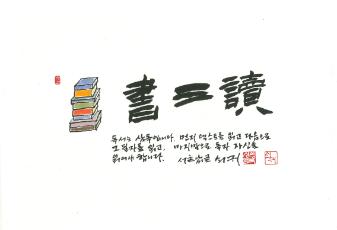 書三讀
독서는 삼독입니다. 먼저 텍스트를 읽고 다음으로
그 필자를 읽고, 마지막으로 독자 자신을
읽어야 합니다.